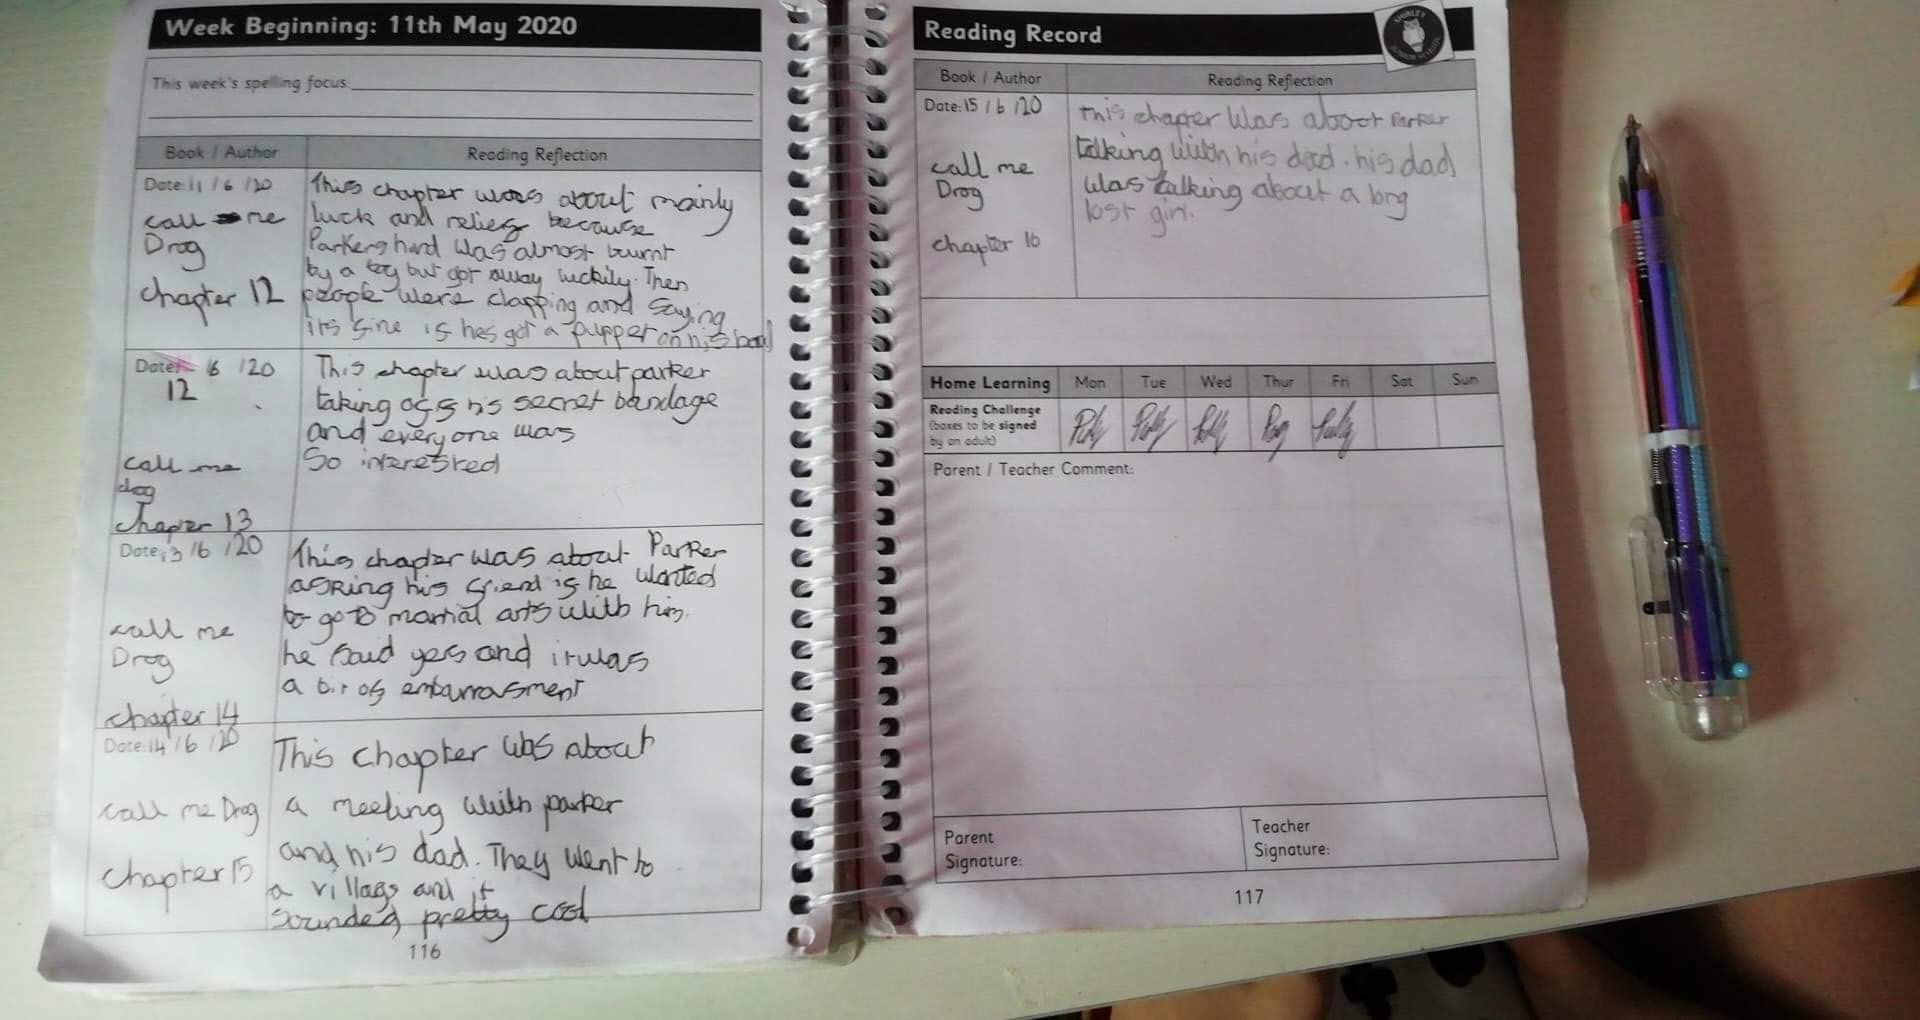 Week Beginning: 11th May 2020
This week's spelling focus:
Book / Author
Reading Reflection
Date: 11 / 6 / 20
call me
Drog
chapter 12
This chapter was about mainly
luck and relief because
Parkers hand was almost burnt
by a toy but got away luckily. Then
people were clapping and saying
its fine if hes got a pupper on his
Date: 6 / 20
12
call me
drog
chapter 13
This chapter was about parker
taking off his secret bandage
and everyone was
so interested
Date: 13 / 6 / 20
call me
Drog
chapter 14
This chapter was about Parker
asking his friend if he wanted
to go to martial arts with him.
he said yes and it was
a bit of embarrasment
Date: 14 / 6 / 20
call me Drog
chapter 15
This chapter was about
a meeting with parker
and his dad. They went to
a village and it
sounded pretty cool
116
Reading Record
SHIRLEY
JUNIOR SCHOOL
Book / Author
Reading Reflection
Date: 15 / 6 / 20
call me
Drog
chapter 16
This chapter was about Parker
talking with his dad. his dad
was talking about a long
lost girl.
Home Learning Mon Tue Wed Thur Fri Sat Sun
Reading Challenge
(boxes to be signed
by an adult)
Parent / Teacher Comment:
Parent
Signature:
Teacher
Signature:
117